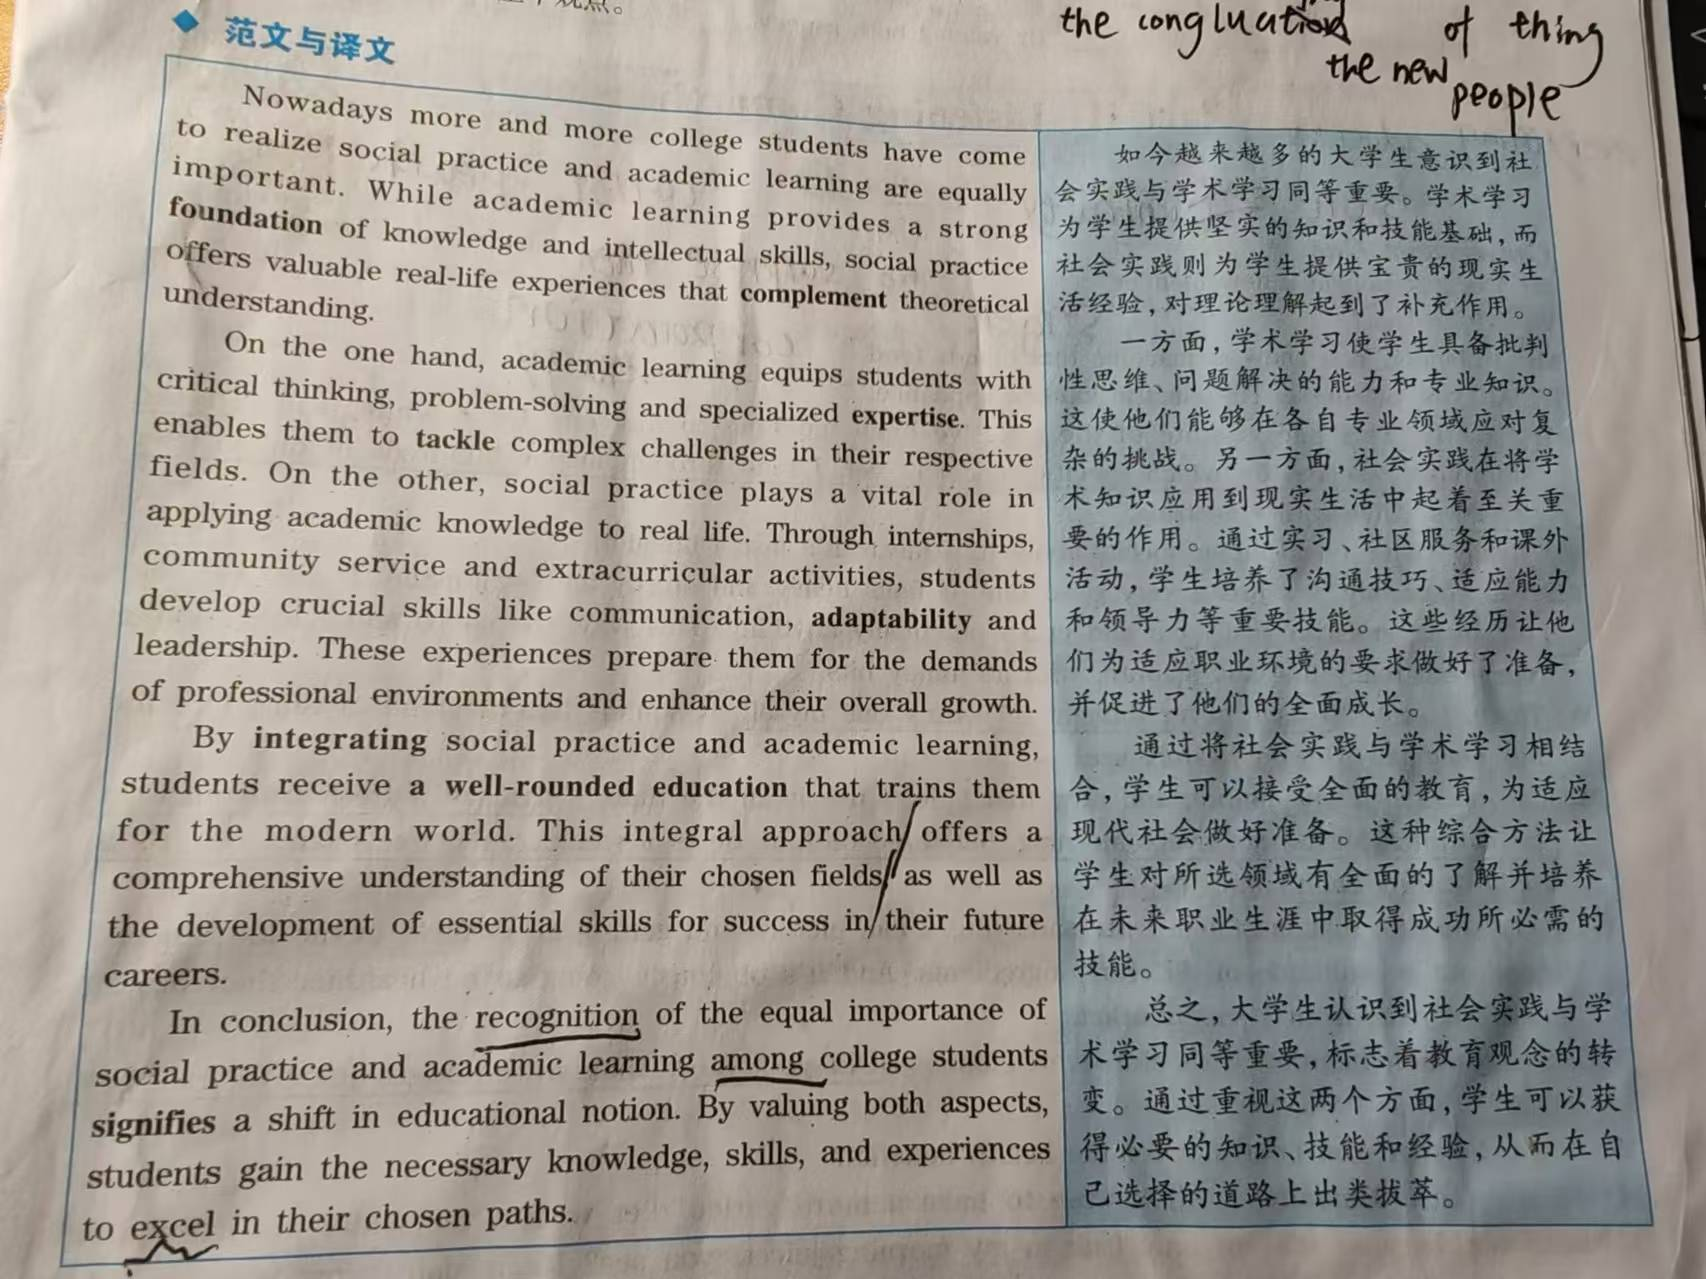 观点。
the congluation of thing
the new people
◆ 范文与译文
Nowadays more and more college students have come
to realize social practice and academic learning are equally
important. While academic learning provides a strong
foundation of knowledge and intellectual skills, social practice
offers valuable real-life experiences that complement theoretical
understanding.
On the one hand, academic learning equips students with
critical thinking, problem-solving and specialized expertise. This
enables them to tackle complex challenges in their respective
fields. On the other, social practice plays a vital role in
applying academic knowledge to real life. Through internships,
community service and extracurricular activities, students
develop crucial skills like communication, adaptability and
leadership. These experiences prepare them for the demands
of professional environments and enhance their overall growth.
By integrating social practice and academic learning,
students receive a well-rounded education that trains them
for the modern world. This integral approach offers a
comprehensive understanding of their chosen fields as well as
the development of essential skills for success in their future
careers.
In conclusion, the recognition of the equal importance of
social practice and academic learning among college students
signifies a shift in educational notion. By valuing both aspects,
students gain the necessary knowledge, skills, and experiences
to excel in their chosen paths.
如今越来越多的大学生意识到社
会实践与学术学习同等重要。学术学习
为学生提供坚实的知识和技能基础，而
社会实践则为学生提供宝贵的现实生
活经验，对理论理解起到了补充作用。
一方面，学术学习使学生具备批判
性思维、问题解决的能力和专业知识。
这使他们能够在各自专业领域应对复
杂的挑战。另一方面，社会实践在将学
术知识应用到现实生活中起着至关重
要的作用。通过实习、社区服务和课外
活动，学生培养了沟通技巧、适应能力
和领导力等重要技能。这些经历让他
们为适应职业环境的要求做好了准备，
并促进了他们的全面成长。
通过将社会实践与学术学习相结
合，学生可以接受全面的教育，为适应
现代社会做好准备。这种综合方法让
学生对所选领域有全面的了解并培养
在未来职业生涯中取得成功所必需的
技能。
总之，大学生认识到社会实践与学
术学习同等重要，标志着教育观念的转
变。通过重视这两个方面，学生可以获
得必要的知识、技能和经验，从而在自
己选择的道路上出类拔萃。